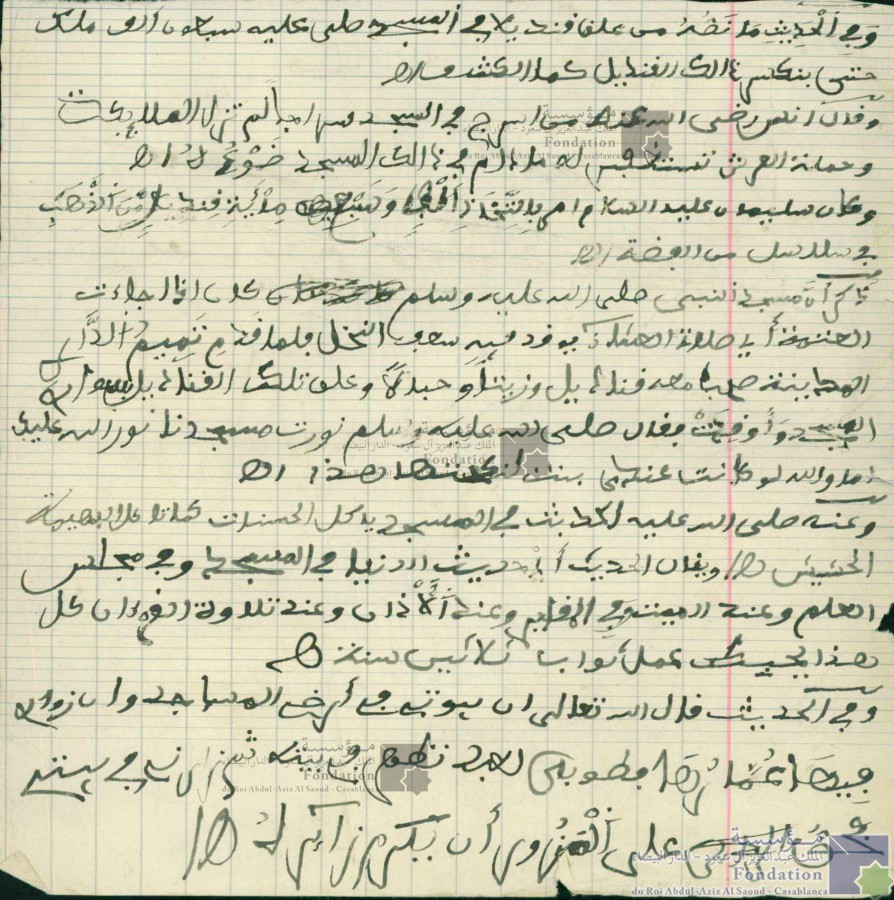 وفي الْحَدِيثِ مَا نَصُّهُ من علق قنديلا في المسجد صلى عليه سبعون ألف ملك
حتى ينكسر ذالك القنديل كما الكشف اه
وقال انس رضي الله عنه من اسرج في المسجد سراجا لم تزل الملايكت
وحملة العرش تستغفر له مادام في ذالك المسجد ضَوْءُهُ اه
وكان سليمان عليه السلام امر بِاتِّخَاذِ قنديل مِنَ الذَّهَبِ
في سلاسل من الفضة اه
ذكر أنَّ مسجد النبي صلى الله عليه وسلم كان اذا جاءت
العتمة أي صلاة العشاء يوقد فيه سعف النخل فلما قدم تَمِيمُ الدَّارِي
المدينة صحب معه قناديل وزيتاً وحبالاً وعلق تلك القناديل بسواري
المسجد وَأُوقِدَتْ فقال صلى الله عليه وسلم نورت مسجدنا نور الله عليك
اما والله لو كانت عندي بنت هذا اه
وعنه صلى الله عليه الحديث في المسجد ياكل الحسنات كما تاكل البهيمة
الحشيش اه ويقال الحديث أي حديث الدنيا في المسجد وفي مجالس
العلم وعند الميت وفي المقابر وعند الْأَذان وعند تلاوة القرءان كل
هذا يحبط عمل ثواب ثلاثين سنة اه
وفي الحديث قال الله تعالى ان بيوتي في أرضي المساجد وان زواري
فِيهَا عُمَّارُهَا فطوبى لعبد تطهر في بيته ثم زارني في بيتي
فحق على الْمَزُورِ أن يكرم زائرهُ اه
مؤسسة
الملك عبد العزيز آل سعود - الدار البيضاء
Fondation
du Roi Abdul-Aziz Al Saoud - Casablanca